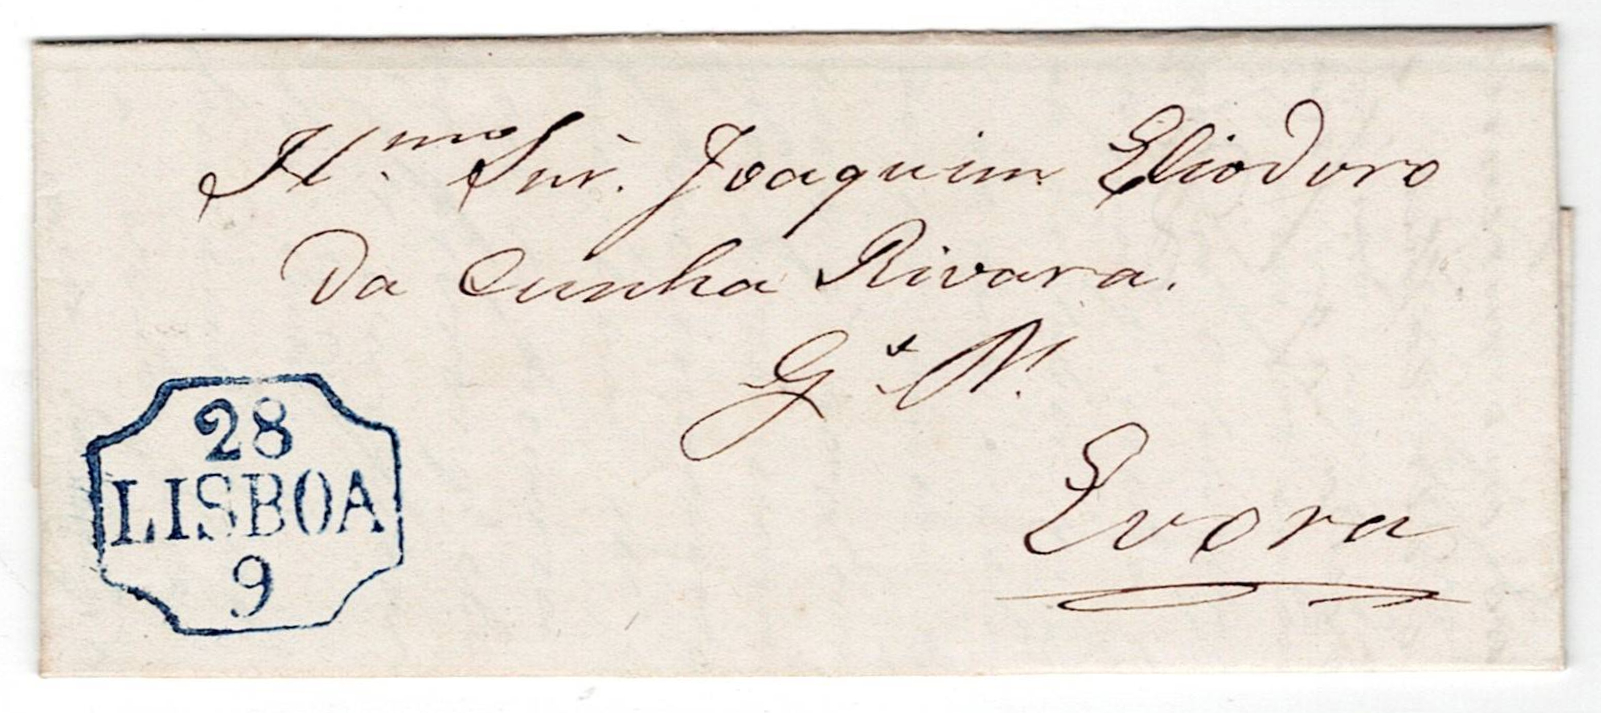 Illmo Snr. Joaquim Eliodoro
da Cunha Rivara.
G. N.
Evora
28
LISBOA
9